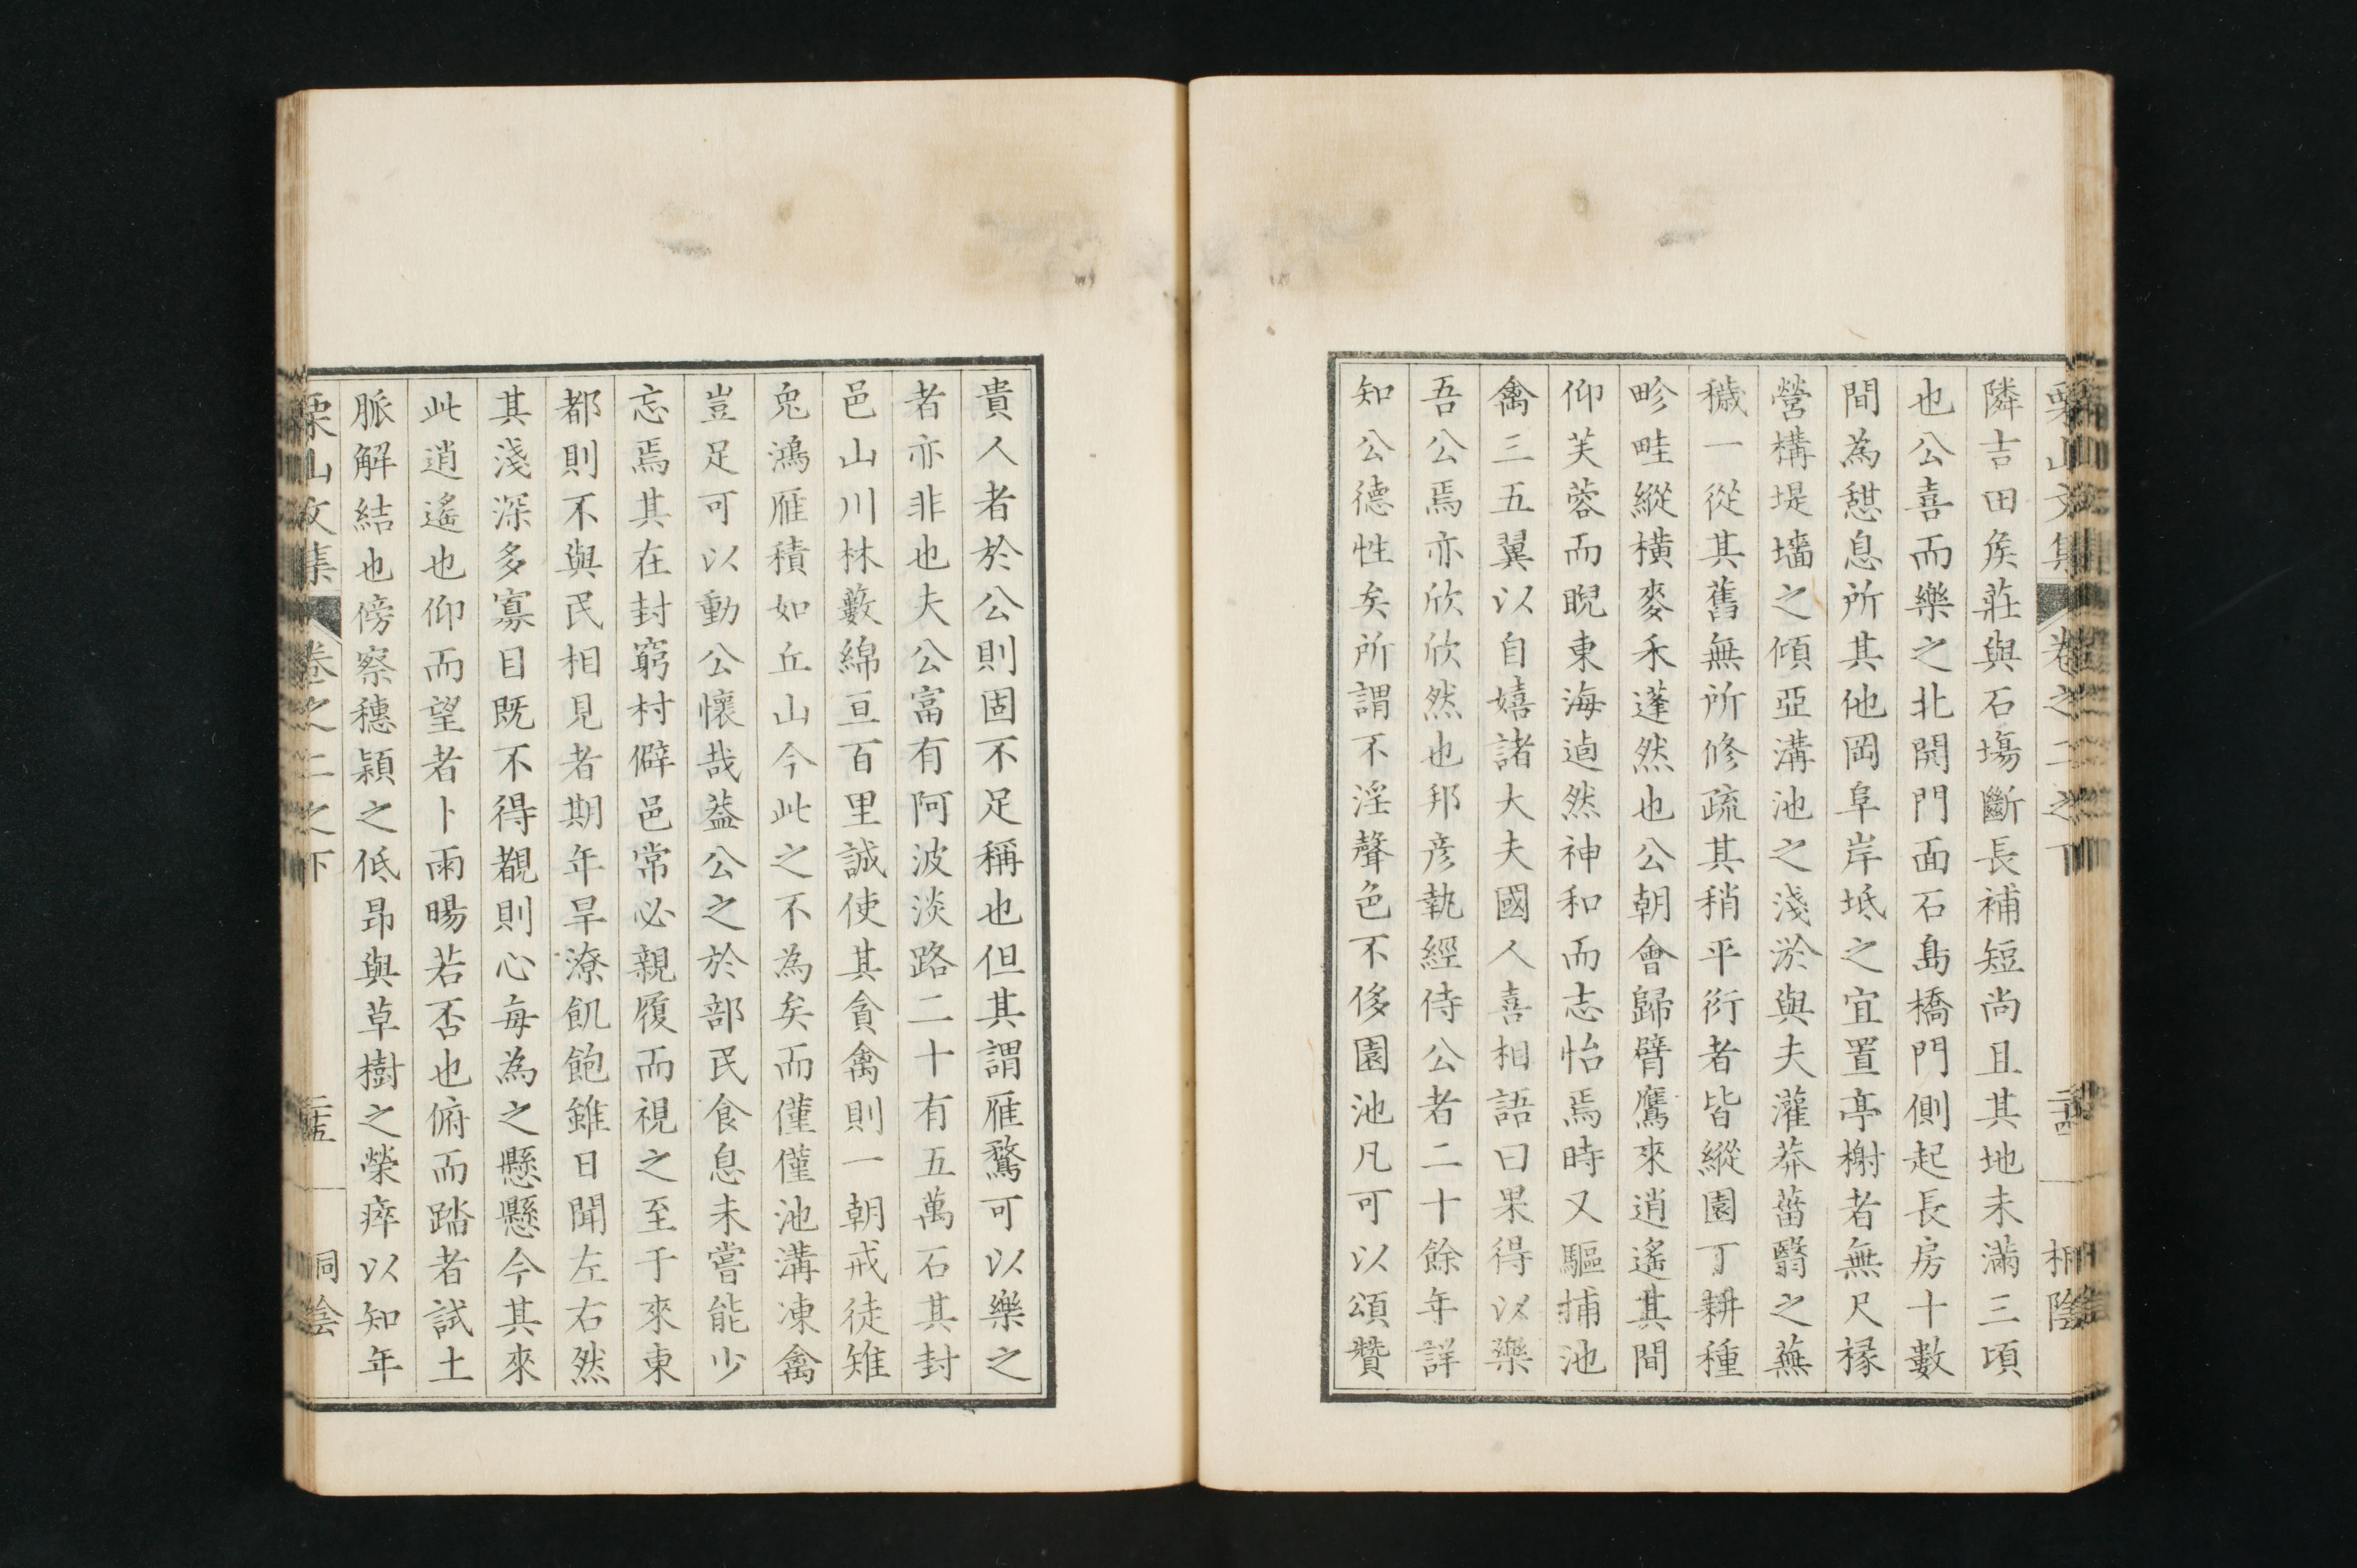 栗山文集 卷之二之下 二十四 桐陰
隣吉田矦莊與石場斷長補短尚且其地未滿三項
也公喜而樂之北開門面石島橋門側起長房十數
間為憇息所其他岡阜岸坻之宜置亭榭者無尺椽
營構堤墻之傾亞溝池之淺淤與夫灌莽菑翳之蕪
穢一從其舊無所修疏其稍平衍者皆縱園丁耕種
畛畦縱橫麥禾蓬然也公朝會歸臂鷹來逍遙其間
仰芙蓉而睨東海逌然神和而志怡焉時又驅捕池
禽三五翼以自嬉諸大夫國人喜相語曰果得以樂
吾公焉亦欣欣然也邦彦執經侍公者二十餘年詳
知公德性矣所謂不淫聲色不侈園池凡可以頌贊
貴人者於公則固不足稱也但其謂雁鶩可以樂之
者亦非也夫公富有阿波淡路二十有五萬石其封
邑山川林藪綿亘百里誠使其貪禽則一朝戒徒雉
兎鴻雁積如丘山今此之不為矣而僅僅池溝凍禽
豈足可以動公懷哉葢公之於部民食息未嘗能少
忘焉其在封窮村僻邑常必親履而視之至于來東
都則不與民相見者期年旱潦飢飽雖日聞左右然
其淺深多寡目既不得覩則心每為之懸懸今其來
此逍遙也仰而望者卜雨暘若否也俯而踏者試土
脈解結也傍察穗穎之低昂與草樹之榮瘁以知年
栗山文集 卷之二之下 二十五 桐陰